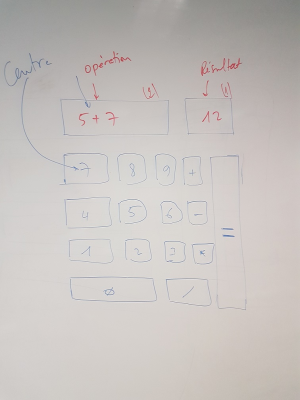 Centre
opération
Résultat
(2)
(1)
5+7
12
7 8 9 +
4 5 6 -
1 2 3 *
0 /
=